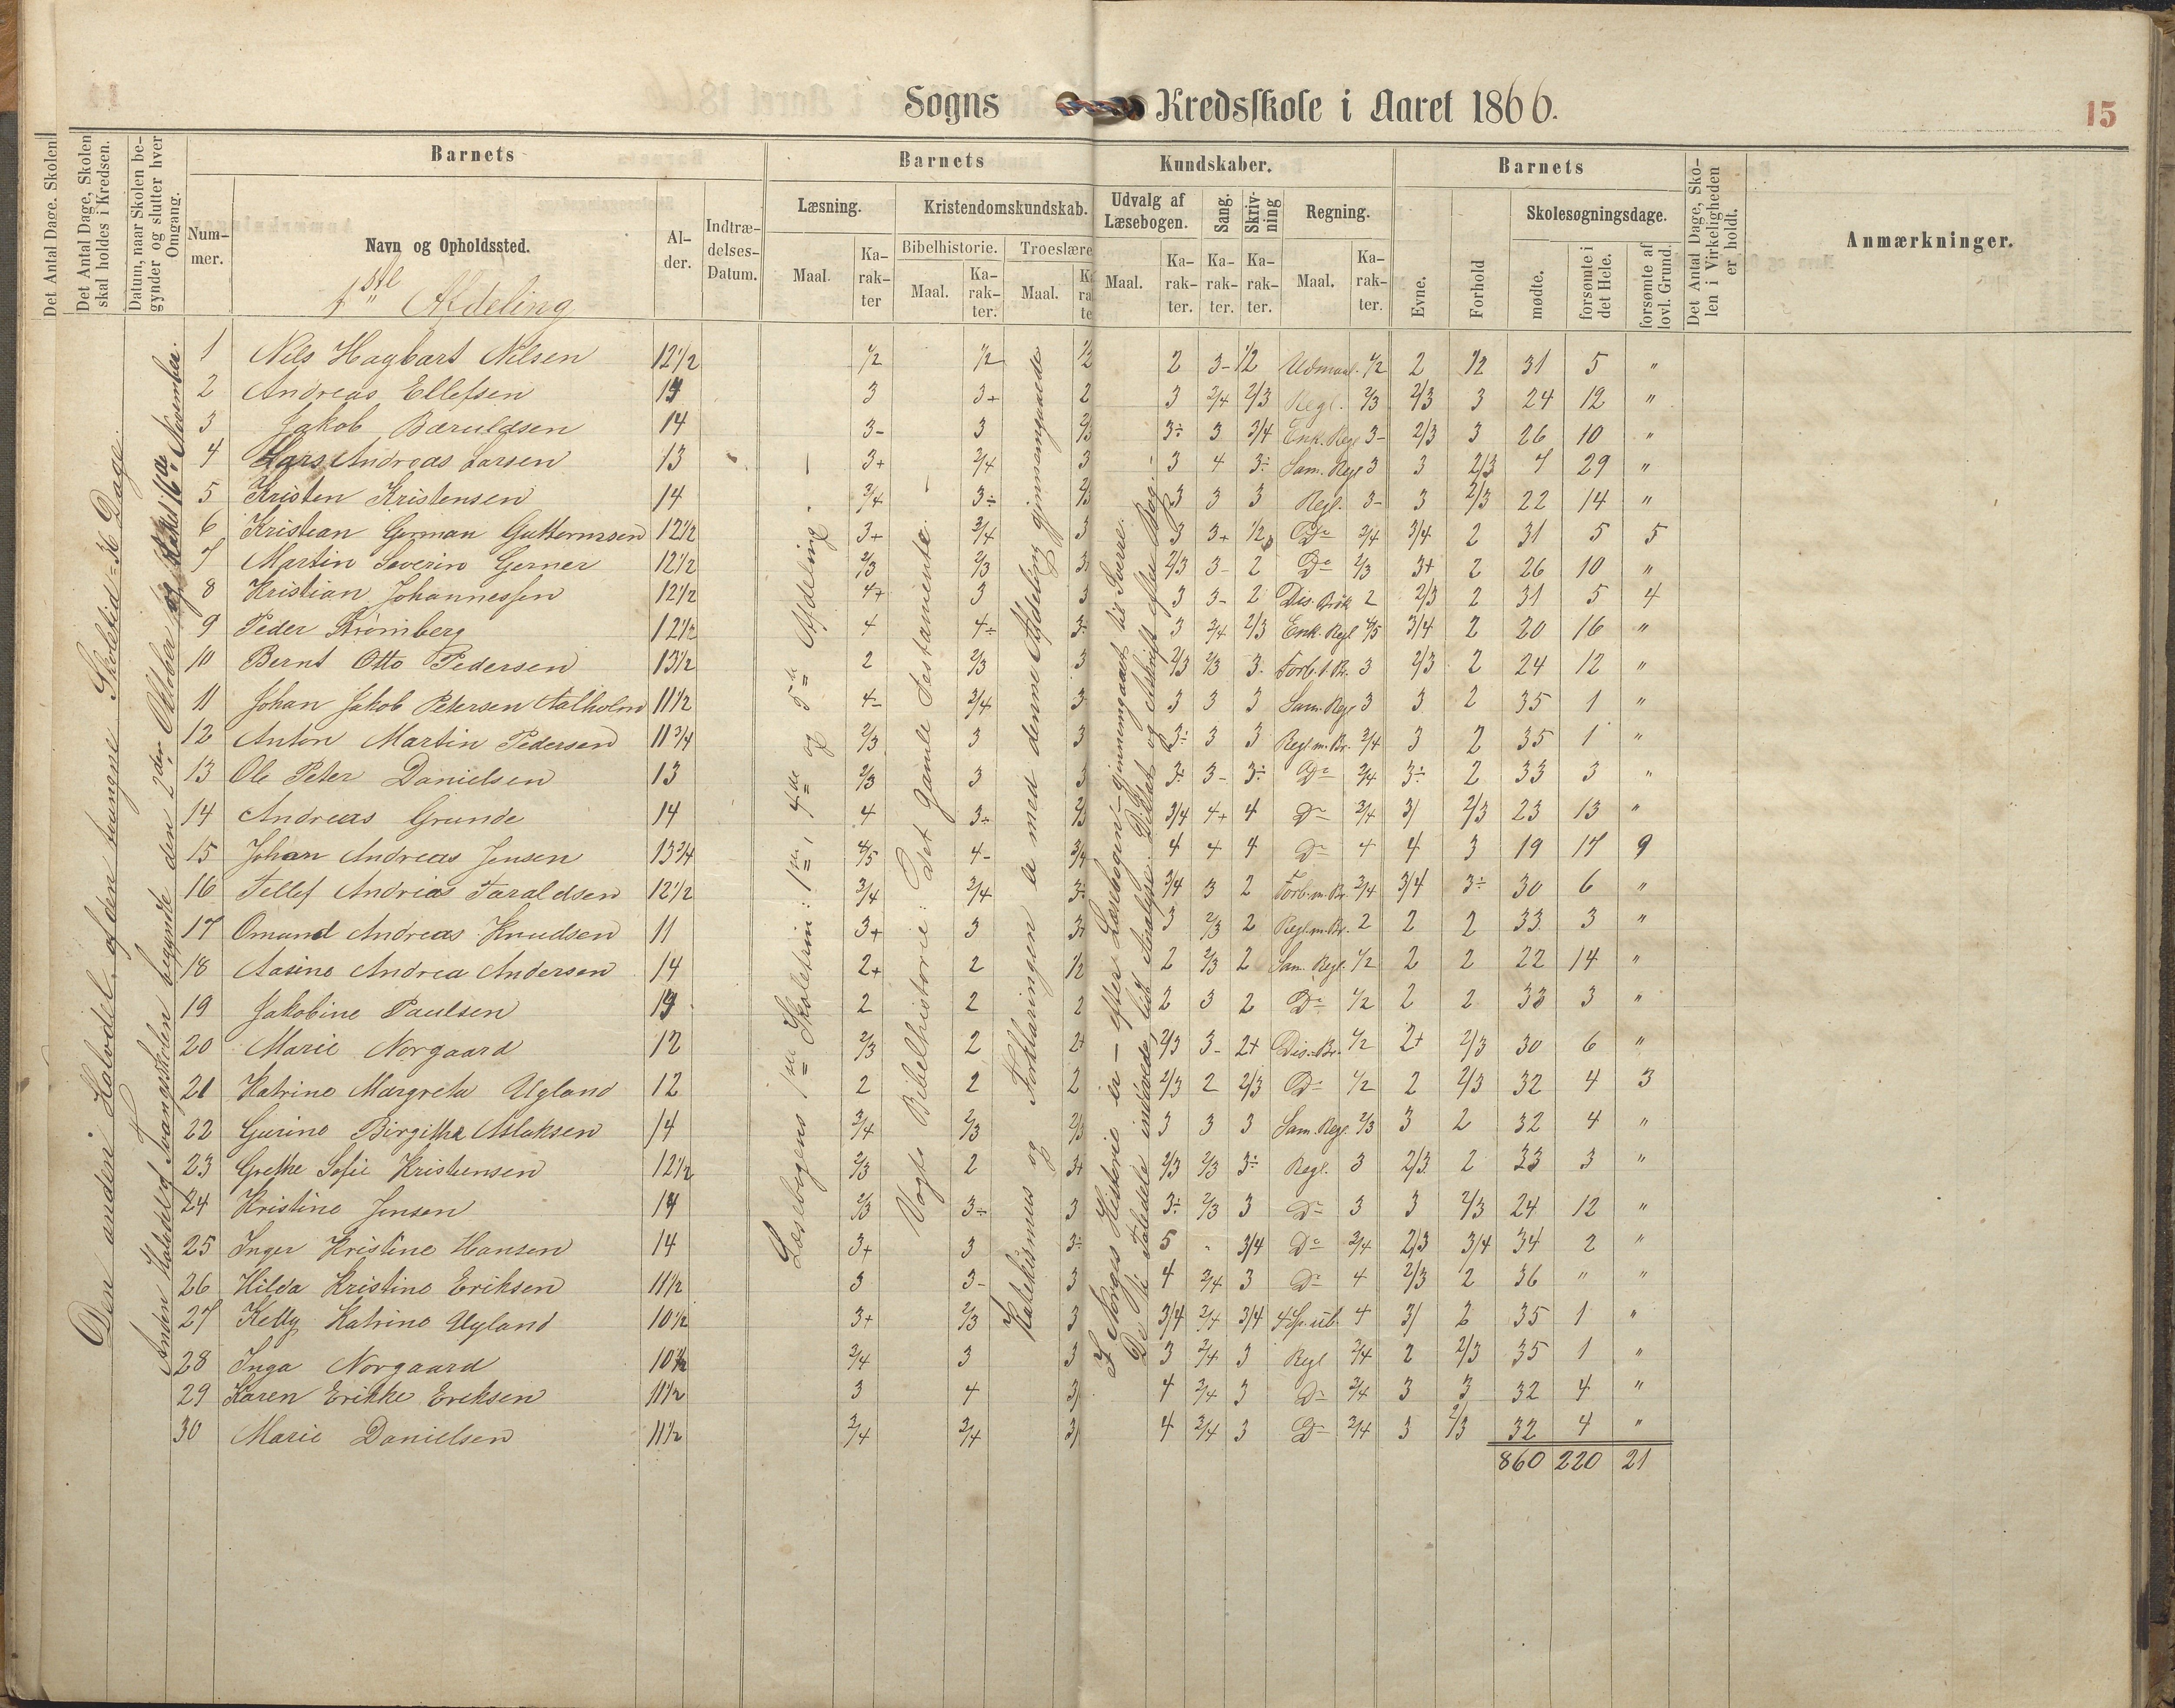 Sogns Kredsskole i Aaret 1866.
15
Det Antal Dage, Skolen
Det Antal Dage, Skolen skal holdes i Kredsen.
Datum, naar Skolen begynder og slutter hver Omgang.
Barnets
Nummer.
Navn og Opholdssted.
Alder.
Indtrædelses-Datum.
Barnets Kundskaber.
Læsning.
Maal.
Karakter
Kristendomskundskab.
Bibelhistorie.
Maal.
Karakter.
Troeslære
Maal.
Udvalg af Læsebogen.
Maal.
Karakter.
Sang.
Karakter.
Skrivning
Karakter.
Regning.
Maal.
Karakter.
Barnets
Evne.
Forhold
Skolesøgningsdage.
mødte.
forsømte i det Hele.
forsømte af lovl. Grund.
Det Antal Dage, Skolen i Virkeligheden er holdt.
Anmærkninger.
1ste Afdeling
Den anden Halvdel af den tvungne Skoletid = 36 Dage.
Anden Halvdel af Tvangsskolen begyndte den 2den Oktober og sluttet 16de November.
Læsebogens 1ste Skoletrin: 1ste, 4de og 5te Afdeling.
Vogts Bibelhistorie: Det gamle Testamente.
Katekismus og Forklaringen er med denne Afdeling gjennemgaaede
I Norges Historie er – efter Læsebogen – gjennemgaaet til Sverre.
De Taledele indøvede, lidt Analyse. Diktat og Afskrift efter Bog.
1 Nils Hagbart Nilsen 12 1/2 1/2 1/2 1/2 2 3- 1/2 Udmaal. 1/2 2 1/2 31 5 "
2 Andreas Ellefsen 14 3 3+ 2 3 3/4 2/3 Regl. 2/3 2/3 3 24 12 "
3 Jakob Bæruldsen 14 3- 3 2/3 3÷ 3 3/4 Enk. Regl 3- 2/3 3 26 10 "
4 Lars Andreas Larsen 13 3+ 3/4 3 3 4 3÷ Sam. Regl 3 3 2/3 7 29 "
5 Kristen Kristensen 14 3/4 3÷ 2/3 3 3 3 Regl. 3- 3 2/3 22 14 "
6 Kristian German Guttormsen 12 1/2 3+ 3/4 3 3 3+ 1/2 Do 3/4 3/4 2 31 5 5
7 Martin Severin Gerner 12 1/2 2/3 2/3 3+ 2/3 3- 2 Do 2/3 3+ 2 26 10 "
8 Kristian Johannessen 12 1/2 4+ 3 3 3 3- 2 Dis. Brøk 2 2/3 2 31 5 4
9 Peder Strømberg 12 1/2 4 4÷ 3÷ 3 3/4 2/3 Enk. Regl 4/5 3/4 2 20 16 "
10 Bernt Otto Pedersen 13 1/2 2 2/3 3 2/3 2/3 3- Forb. 1. Br. 3 2/3 2 24 12 "
11 Johan Jakob Petersen Aalholm 11 1/2 4- 3/4 3 3 3 3 Sam. Regl 3 3 2 35 1 "
12 Anton Martin Pedersen 11 3/4 2/3 3 3 3÷ 3 3 Regl m. Br. 3/4 3 2 35 1 "
13 Ole Peter Danielsen 13 2/3 3 3 3+ 3- 3÷ Do 3/4 3÷ 2 33 3 "
14 Andreas Grunde 14 4 3÷ 2/3 3/4 4+ 4 Do 3/4 3/ 2/3 23 13 "
15 Johan Andreas Jensen 13 3/4 4/5 4- 3/4 4 4 4 Do 4 4 3 19 17 9
16 Tellef Andreas Taraldsen 12 1/2 3/4 3/4 3÷ 3/4 3 2 Forb. m. Br. 3/4 3/4 3÷ 30 6 "
17 Omund Andreas Knudsen 11 3+ 3 3+ 3 2/3 2 Regl. m. Br. 2 2 2 33 3 "
18 Aasine Andrea Andersen 14 2+ 2 1/2 2 2/3 2 Sam. Regl. 1/2 2 2 22 14 "
19 Jakobine Paulsen 14 2 2 2 2 3 2 Do 1/2 2 2 33 3 "
20 Marie Norgaard 12 2/3 2 2+ 2/3 3- 2+ Dis. Br. 1/2 2+ 2/3 30 6 "
21 Katrine Margrete Ugland 12 2 2 2 2/3 2 2/3 Do 1/2 2 2/3 32 4 3
22 Gurine Birgithe Aslaksen 14 3/4 2/3 2/3 3 3 3 Sam. Regl. 2/3 3 2 32 4 "
23 Grethe Sofie Kristensen 12 1/2 2/3 2 3+ 2/3 2/3 3÷ Regl. 3 2/3 2 33 3 "
24 Kristine Jensen 14 2/3 3÷ 3 3÷ 2/3 3 Do 3 3 2/3 24 12 "
25 Inger Kristine Hansen 14 3+ 3 3÷ 5 - 3/4 Do 3/4 2/3 3/4 34 2 "
26 Hilda Kristine Eriksen 11 1/2 3 3- 3 4 3/4 3 Do 4 2/3 2 36 " "
27 Ketty Katrine Ugland 10 1/2 3+ 2/3 3 3/4 3/4 3/4 4 Sp. ub. 4 3/ 2 35 1 "
28 Inga Norgaard 10 1/2 3/4 3 3 3 3/4 3 Regl 3/4 2 2/3 35 1 "
29 Karen Erikke Ereksen 11 1/2 3 4 3/ 4 3/4 3 Do 3/4 3 3 32 4 "
30 Marie Danielsen 11 1/2 3/4 3/4 3/ 4 3/4 3 Do 3/4 3 2/3 32 4 "
860 220 21